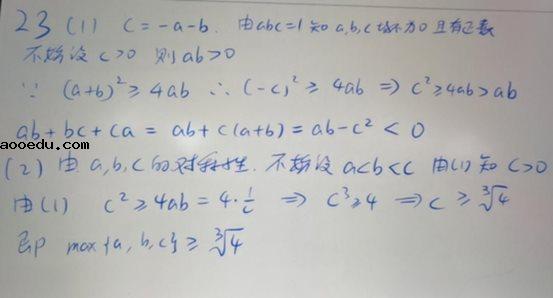 23 (1) c=-a-b. 由abc=1知a,b,c均不为0且有正数
不妨设 c>0 则 ab>0
∵ (a+b)²≥4ab ∴ (-c)²≥4ab ⇒ c²≥4ab>ab
ab+bc+ca=ab+c(a+b)=ab-c²<0
aooedu.com
(2) 由a,b,c的对称性.不妨设a<b<c 由(1)知c>0
由(1) c²≥4ab=4·1/c ⇒ c³≥4 ⇒ c≥∛4
即 max{a,b,c}≥∛4